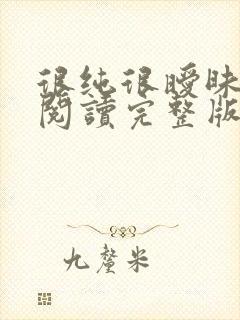 很纯很曖昧
閱讀完整版
九釐米